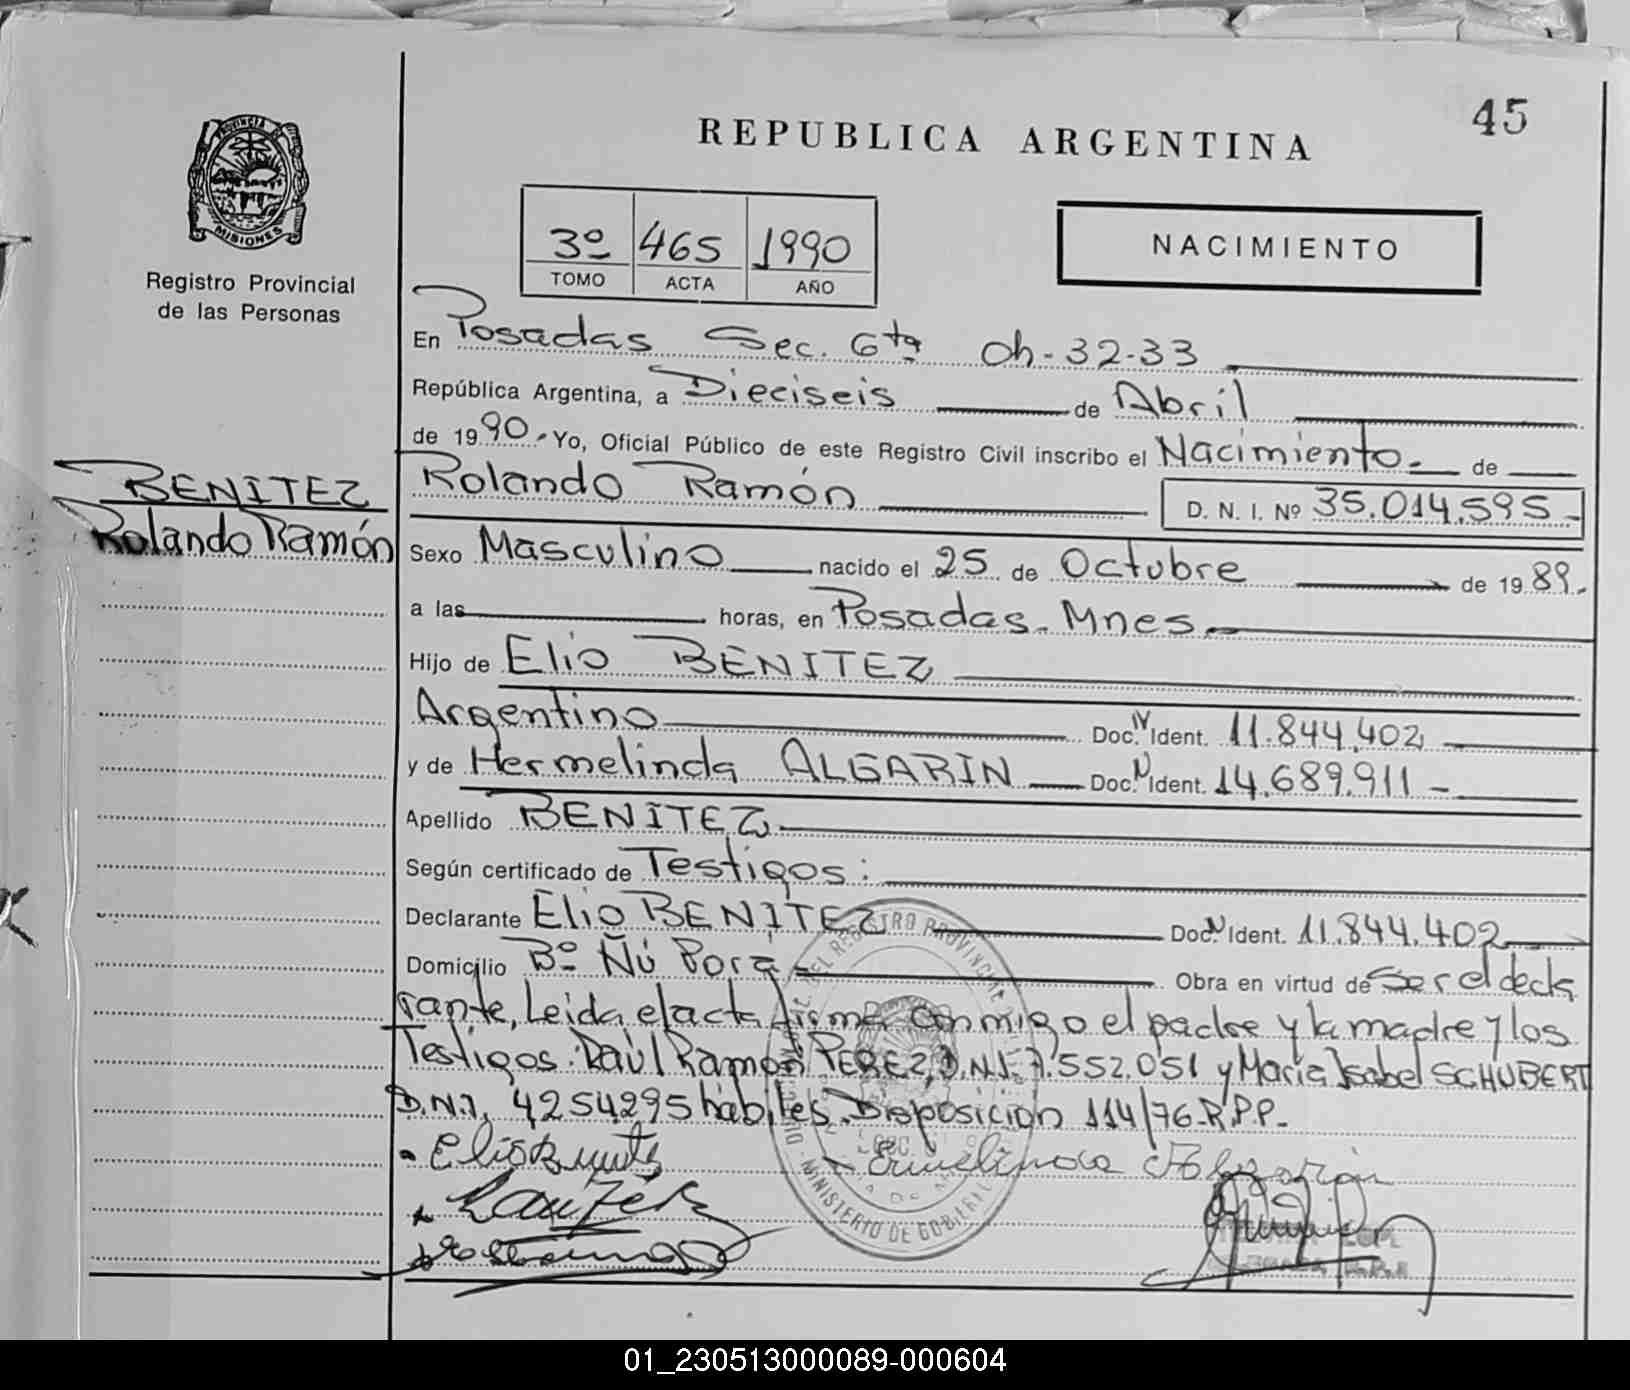 45
REPUBLICA ARGENTINA
PROVINCIA DE
MISIONES
Registro Provincial
de las Personas
3º 465 1990
TOMO ACTA AÑO
NACIMIENTO
En Posadas Sec. 6ta Ch-32-33
República Argentina, a Dieciseis de Abril
de 1990.- Yo, Oficial Público de este Registro Civil inscribo el Nacimiento.- de
BENITEZ
Rolando Ramón
Rolando Ramón D. N. I. Nº 35.014.595-
Sexo Masculino nacido el 25 de Octubre de 1989.-
a las horas, en Posadas-Mnes.-
Hijo de Elio BENITEZ
Argentino Doc. N Ident. 11.844.402
y de Hermelinda ALGARIN Doc. N Ident. 14.689.911-
Apellido BENITEZ
Según certificado de Testigos:
Declarante Elio BENITEZ Doc. N Ident. 11.844.402
Domicilio Bº Ñú Porá Obra en virtud de Ser el decla
rante, Leida el acta firma conmigo el padre y la madre y los
Testigos: Raúl Ramón PEREZ, D.N.I. 7.552.051 y María Isabel SCHUBERT
D.N.I. 4254295 hábiles. Disposicion 114/76-R.P.P.-
Elio Benitez Ermelinda Algarin
DEL REGISTRO PROVINCIAL
MINISTERIO DE GOBIERNO
01_230513000089-000604